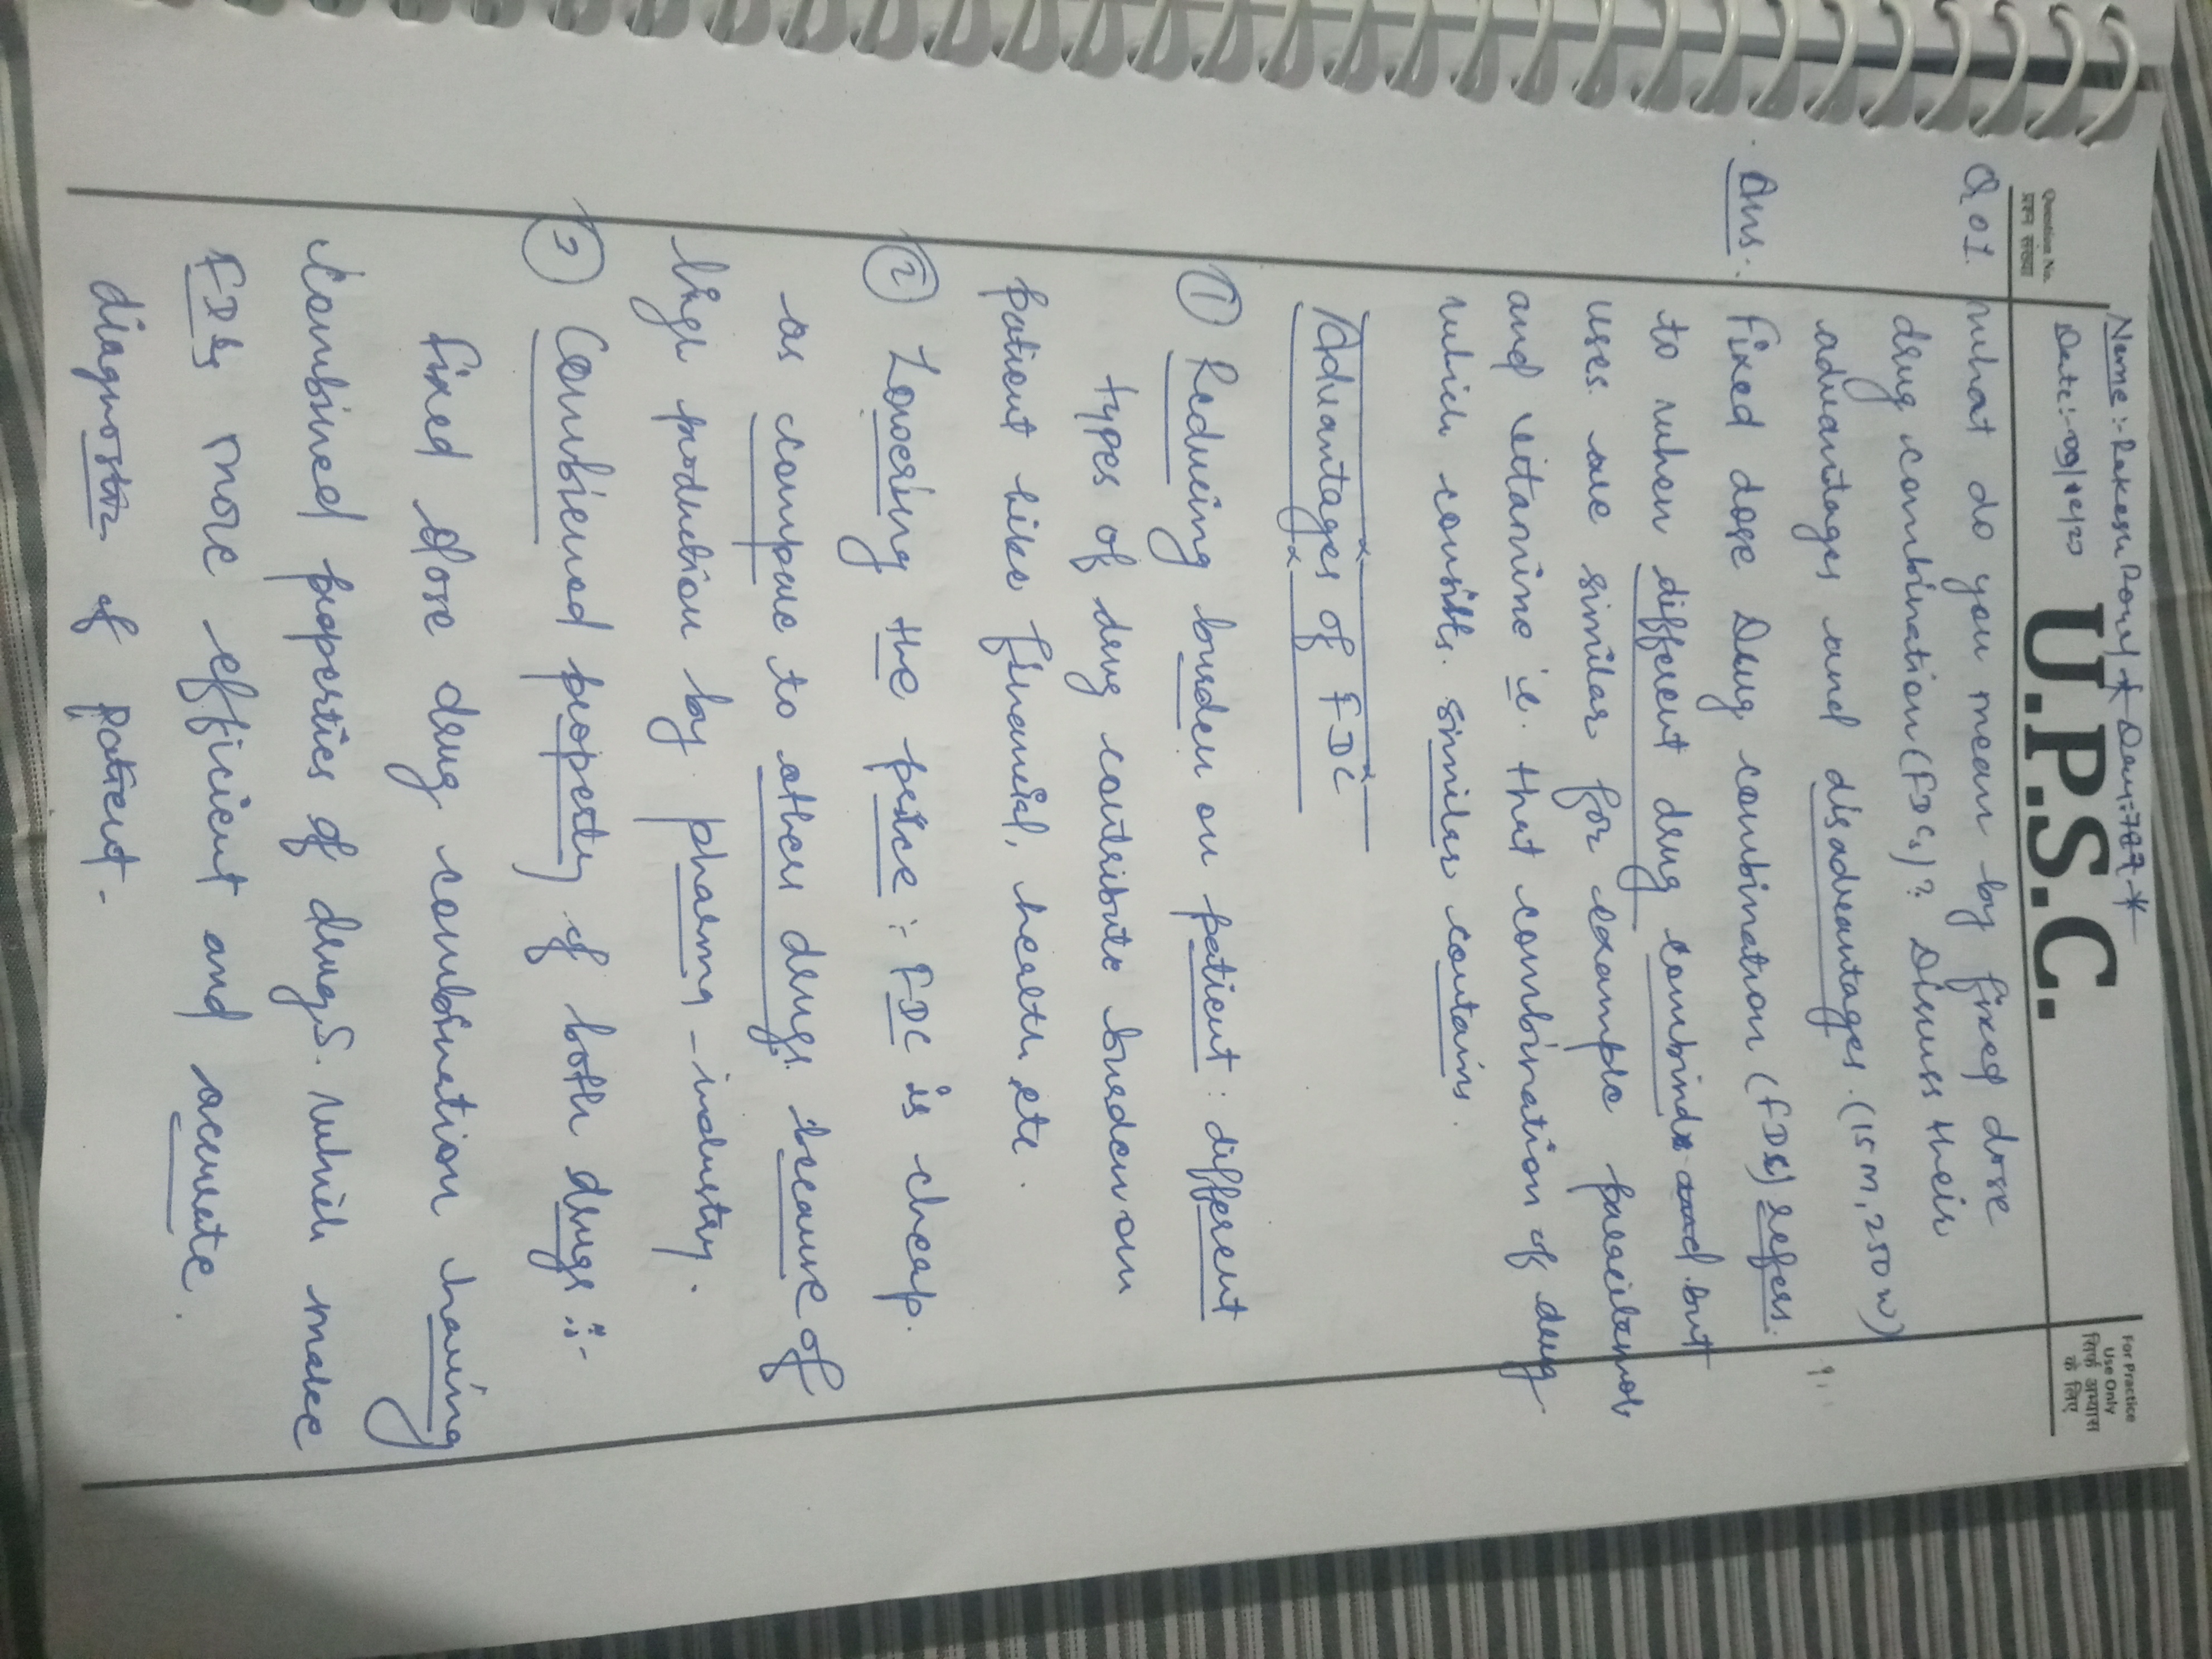 Name:- Rakesh Porel * Day:-787 *
Date:- 09/ /23
U.P.S.C.
Question No.
प्रश्न संख्या
For Practice
Use Only
सिर्फ अभ्यास
के लिए
Q.01. what do you mean by fixed dose
drug combination (FDCs)? Discuss their
advantages and disadvantages. (15 m, 250 w)
Ans:- Fixed dose Drug combination (FDCs) refers.
to when different drug combinds but
uses are similar for example paracitamol
and citamine i.e. that combination of drug
which consits. similar contains.
Advantages of FDC
① Reducing burden on patient : different
types of drug contribute burden on
patient like financial, health etc.
② Lowering the price :- FDC is cheap.
as compare to other drugs because of
large production by pharma-industry.
③ Combiened property of both drugs :-
fixed dose drug combination having
Combined properties of drugs. which make
FDCs more efficient and accurate.
diagnostic of patient.